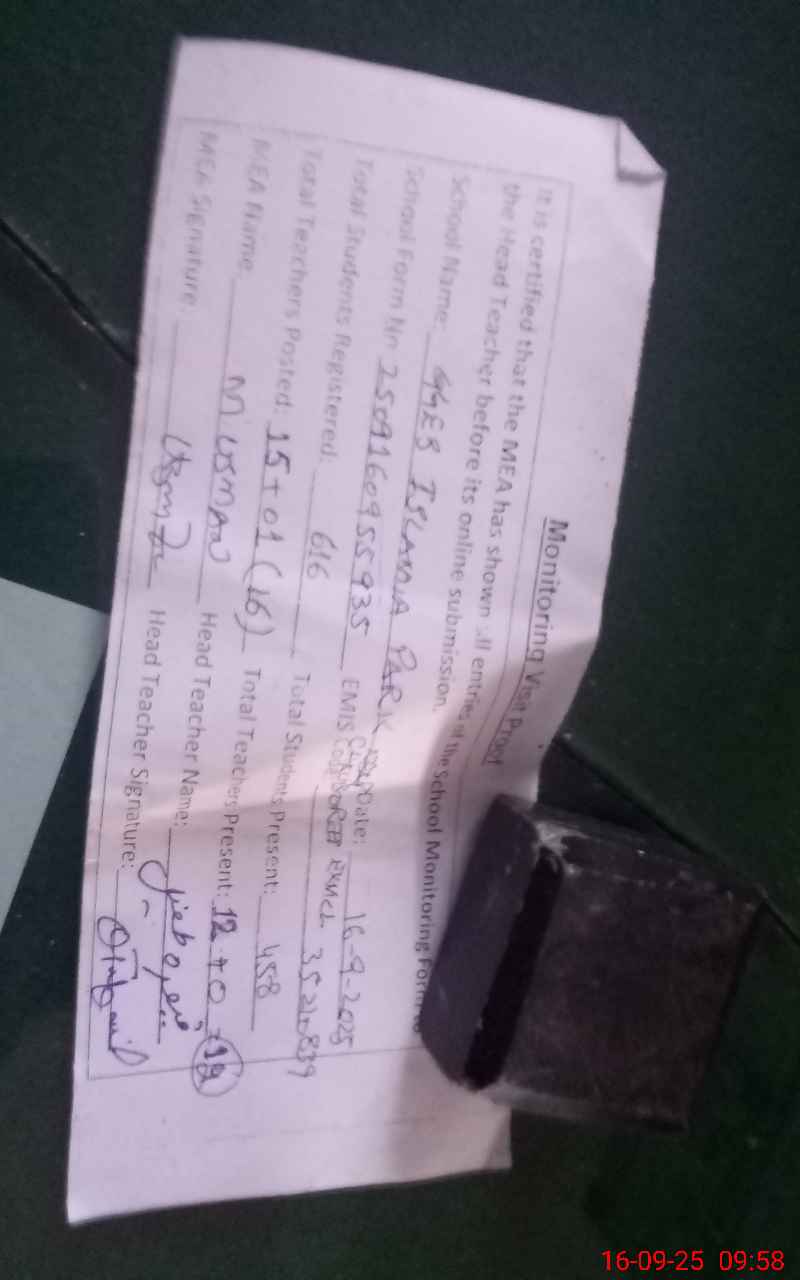 Monitoring Visit Proof
It is certified that the MEA has shown all entries of the School Monitoring Form to
the Head Teacher before its online submission.
School Name: GGES ISLAMIA PARK Date: 16-9-2025
School Form No 2509160955935 EMIS Code 35210839
Total Students Registered: 616 Total Students Present: 458
Total Teachers Posted: 15+01(16) Total Teachers Present: 12+0=12
MEA Name M. USMAN Head Teacher Name:
MEA Signature: Head Teacher Signature:
16-09-25 09:58